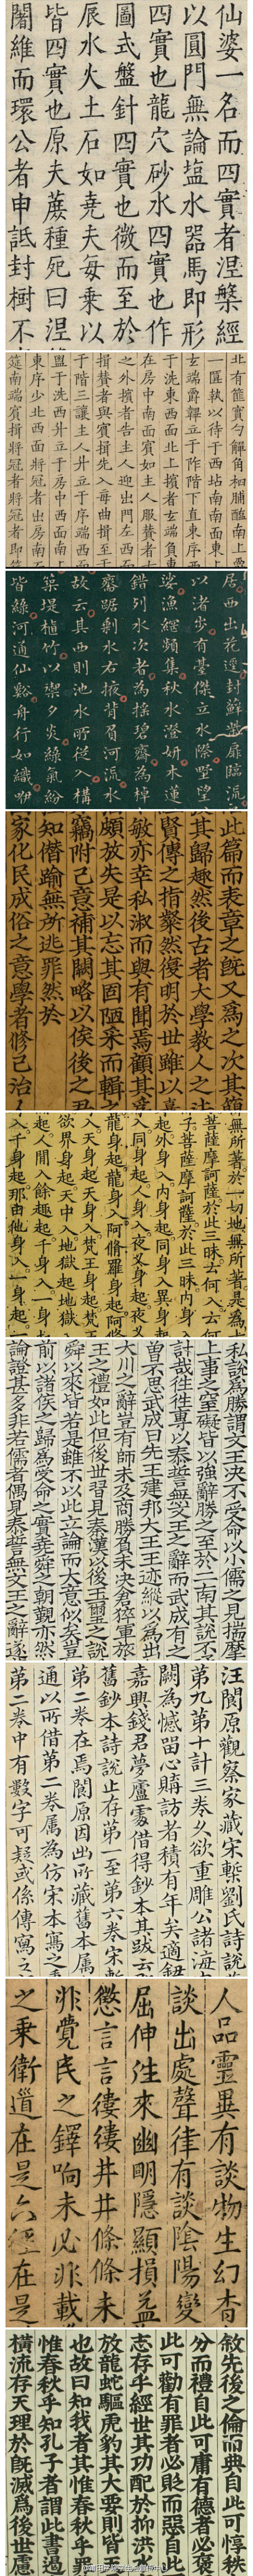 仙婆一名而四實者涅槃經
以圓門無論塩水器馬即形
四實也龍穴砂水四實也作
圖式盤針四實也微而至於
辰水火土石如堯夫每乗以
皆四實也原夫蔗種死曰涅
闍維而環公者申詆封樹不
北有篚實勺觶角柶脯醢南上
一匴執以待于西坫南南面東
玄端爵韠立于阼階下直東序西
于洗東西面北上擯者玄端負東
在房中南面賓如主人服贊者
之外擯者告主人迎出門左西面
揖贊者與賓揖先入每曲揖至于
于階三讓主人升立于序端西面
盥于洗西升立于房中西面南上
東序少北西面將冠者出房南
筵南端賓揖將冠者將冠者即筵
居西出花逕封蘚當扉臨流
以渚少有基傑立水際堅望
娑漁網頻集秋水澄妍木蓮
錯列水次者為搖碧齋為棹
齋踞剩水右掖背負河流水
故云其西則池水所從入構
築堤植竹以禦夕炎綠氣紛
皆綠河通仙谿舟行如織咿
此篇而表章之旣又為之次其簡
其歸趣然後古者大學教人之法
賢傳之指粲然復明於世雖以熹
敏亦幸私淑而與有聞焉顧其
頗放失是以忘其固陋采而輯之
竊附己意補其闕略以俟後之君
知僭踰無所逃罪然於
家化民成俗之意學者修己治人
無所著於一切地無所著是為
菩薩摩訶薩於此三昧云何入云何
子菩薩摩訶薩於此三昧內身
起外身入內身起同身入異身
入同身起人身入夜叉身起夜叉
龍身起龍身入阿脩羅身起阿脩
入天身起天身入梵王身起梵王
欲界身起天中入地獄起地獄
起人間入餘趣起千身入一身
入千身起那由他身入一身起
私說為勝謂文王決不受命以小儒之見揣摩
上事之窒礙皆以強辭勝之至於二南其說不
計哉徃徃專以泰誓無文王之辭而武成有之
曽不思武成曰先王建邦大王王迹縱以為出
大川之辭豈有師未及商勝負未決君猝軍旅
王之禮如此但後世習見秦漢以後王璽之說
舜以來皆若是雖不以此立論而大意似矣豈
前以諸侯之歸為受命之實堯舜之朝覲亦然
論證甚多非若儒者偶見泰誓無文王之辭遂
汪閬原觀察家藏宋槧劉氏詩說
第九第十計三卷久欲重雕公諸海
闕為憾畱心購訪者積有年矣適鈕
嘉興錢君夢廬䖏借得鈔本其跋云
舊鈔本詩說止存第一至第六卷宋槧
第二卷在焉閬原因出所藏舊本属
通以所借第二卷属為仿宋本寫之
第二卷中有數字可疑或係傳寫之
人品靈異有談物生幻杳
談出處聲律有談陰陽變
屈伸徃來幽明隱顯損益
懲言言僂僂井井條條未
非覺民之鐸响未必非載
之乗衛道在是六經在是
敘先後之倫而典自此可惇秩
分而禮自此可庸有德者必褒
此可勸有罪者必貶而惡自此
志存乎經世其功配於抑洪水
放龍蛇驅虎豹其大要則皆
也故曰知我者其惟春秋乎罪
惟春秋乎知孔子者謂此書遏
橫流存天理於旣滅爲後世慮